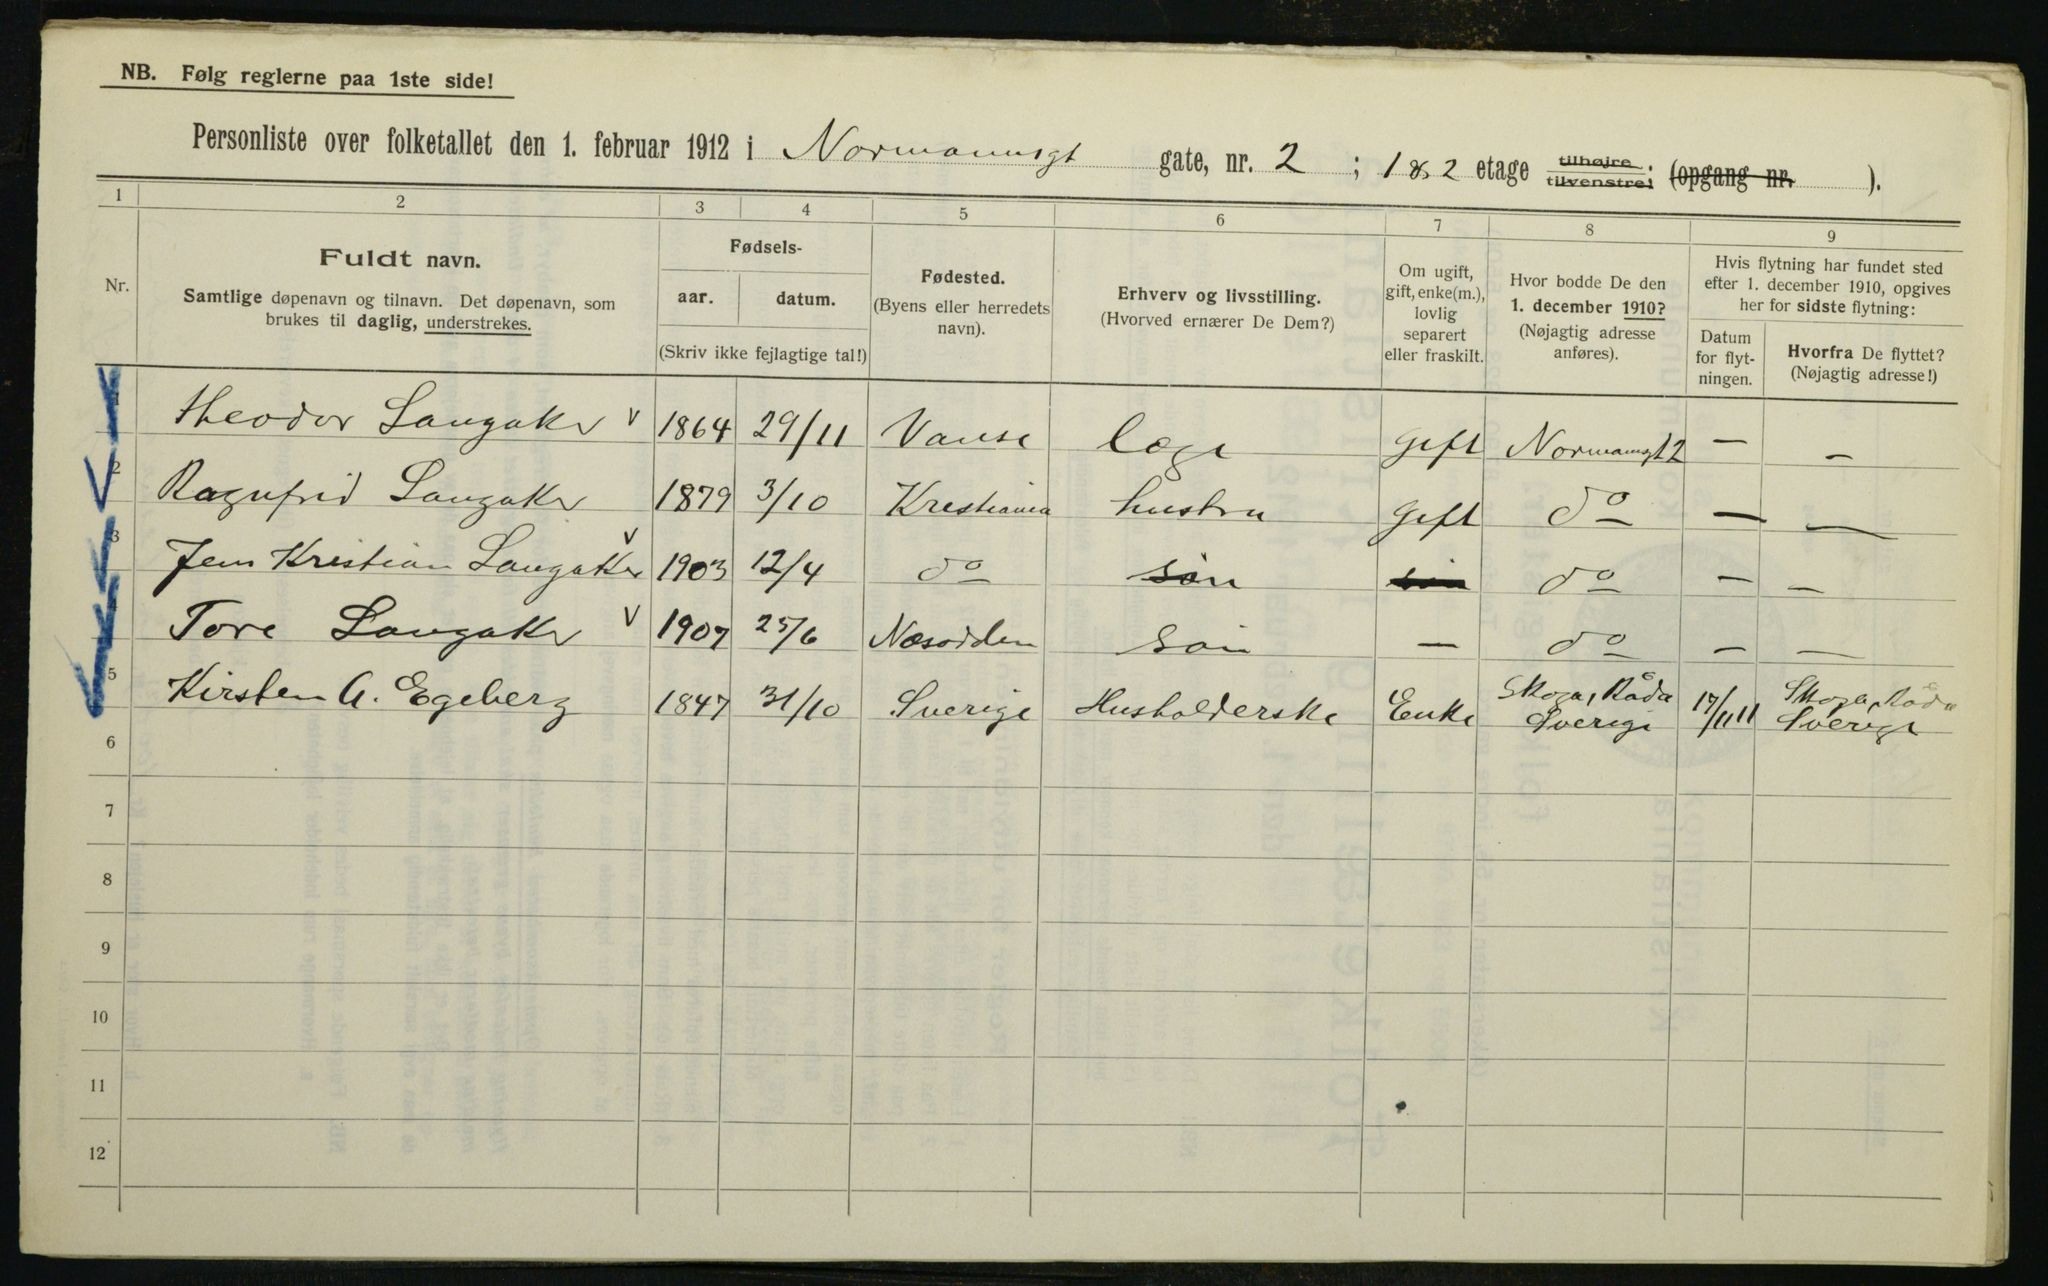 NB. Følg reglerne paa 1ste side!
Personliste over folketallet den 1. februar 1912 i Normannsgt gate, nr. 2 ; 1 & 2 etage tilhøjre tilvenstre; (opgang nr. ).
1 2 3 4 5 6 7 8 9
Nr.
Fuldt navn.
Samtlige døpenavn og tilnavn. Det døpenavn, som
brukes til daglig, understrekes.
Fødsels-
aar. datum.
(Skriv ikke fejlagtige tal!)
Fødested.
(Byens eller herredets
navn).
Erhverv og livsstilling.
(Hvorved ernærer De Dem?)
Om ugift,
gift, enke(m.),
lovlig
separert
eller fraskilt.
Hvor bodde De den
1. december 1910?
(Nøjagtig adresse
anføres).
Hvis flytning har fundet sted
efter 1. december 1910, opgives
her for sidste flytning:
Datum
for flyt-
ningen.
Hvorfra De flyttet?
(Nøjagtig adresse!)
1 Theodor Langaker v 1864 29/11 Vanse læge Gift Normansgt 2 — —
2 Ragnfrid Langaker 1879 3/10 Kristiania hustru Gift do — —
3 Jens Kristian Langaker v 1903 12/4 do søn do — —
4 Tore Langaker v 1907 25/6 Næsodden søn — do — —
5 Kirsten A. Egeberg 1847 31/10 Sverige Husholderske Enke Skoga, Råda Sverige 17/11 11 Skoga, Råda Sverige
6
7
8
9
10
11
12